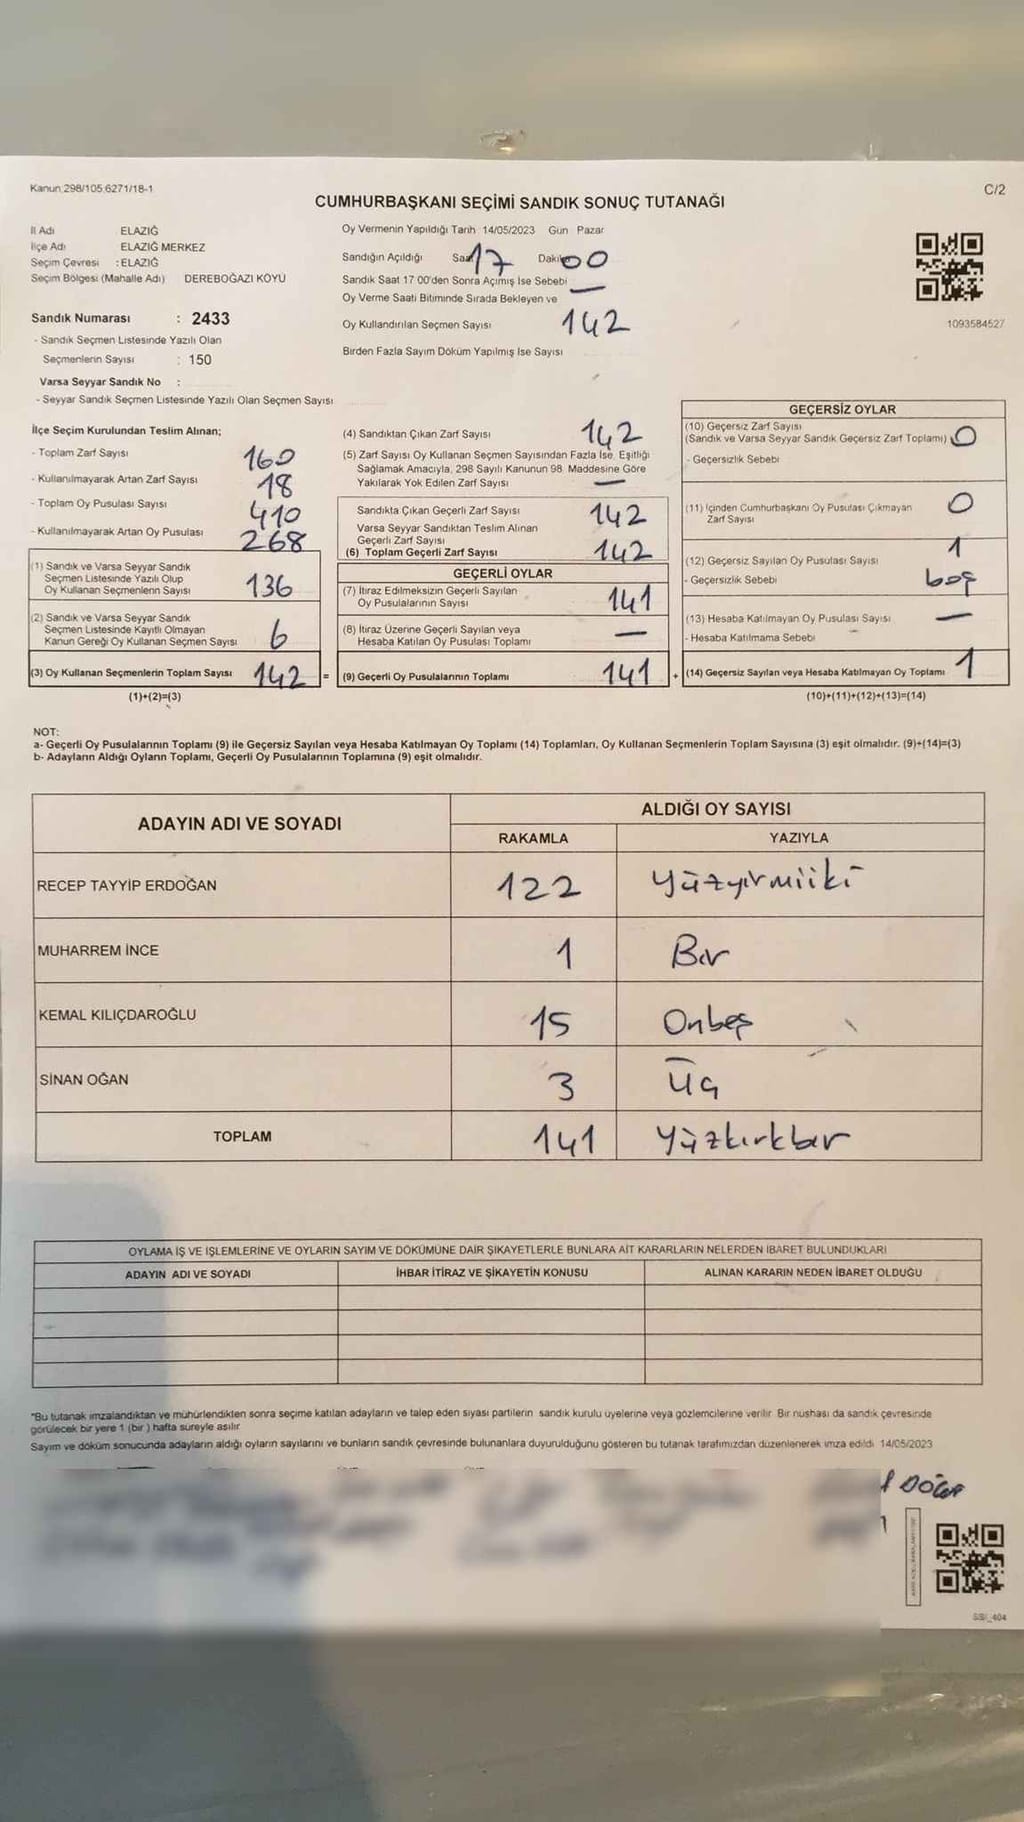 Kanun 298/105 6271/18-1
C/2
CUMHURBAŞKANI SEÇİMİ SANDIK SONUÇ TUTANAĞI
İl Adı ELAZIĞ
İlçe Adı ELAZIĞ MERKEZ
Seçim Çevresi : ELAZIĞ
Seçim Bölgesi (Mahalle Adı) DEREBOĞAZI KÖYÜ
Sandık Numarası : 2433
- Sandık Seçmen Listesinde Yazılı Olan
Seçmenlerin Sayısı : 150
Varsa Seyyar Sandık No :
- Seyyar Sandık Seçmen Listesinde Yazılı Olan Seçmen Sayısı
Oy Vermenin Yapıldığı Tarih 14/05/2023 Gün Pazar
Sandığın Açıldığı Saat 17 Dakika 00
Sandık Saat 17 00'den Sonra Açımış İse Sebebi —
Oy Verme Saati Bitiminde Sırada Bekleyen ve
Oy Kullandırılan Seçmen Sayısı 142
Birden Fazla Sayım Döküm Yapılmış İse Sayısı
1093584527
İlçe Seçim Kurulundan Teslim Alınan;
- Toplam Zarf Sayısı 160
- Kullanılmayarak Artan Zarf Sayısı 18
- Toplam Oy Pusulası Sayısı 410
- Kullanılmayarak Artan Oy Pusulası 268
(1) Sandık ve Varsa Seyyar Sandık
Seçmen Listesinde Yazılı Olup
Oy Kullanan Seçmenlerin Sayısı 136
(2) Sandık ve Varsa Seyyar Sandık
Seçmen Listesinde Kayıtlı Olmayan
Kanun Gereği Oy Kullanan Seçmen Sayısı 6
(3) Oy Kullanan Seçmenlerin Toplam Sayısı 142 =
(1)+(2)=(3)
(4) Sandıktan Çıkan Zarf Sayısı 142
(5) Zarf Sayısı Oy Kullanan Seçmen Sayısından Fazla İse, Eşitliği
Sağlamak Amacıyla, 298 Sayılı Kanunun 98. Maddesine Göre
Yakılarak Yok Edilen Zarf Sayısı —
Sandıkta Çıkan Geçerli Zarf Sayısı 142
Varsa Seyyar Sandıktan Teslim Alınan
Geçerli Zarf Sayısı
(6) Toplam Geçerli Zarf Sayısı 142
GEÇERLİ OYLAR
(7) İtiraz Edilmeksizin Geçerli Sayılan
Oy Pusulalarının Sayısı 141
(8) İtiraz Üzerine Geçerli Sayılan veya
Hesaba Katılan Oy Pusulası Toplamı —
(9) Geçerli Oy Pusulalarının Toplamı 141 +
GEÇERSİZ OYLAR
(10) Geçersiz Zarf Sayısı
(Sandık ve Varsa Seyyar Sandık Geçersiz Zarf Toplamı) 0
- Geçersizlik Sebebi
(11) İçinden Cumhurbaşkanı Oy Pusulası Çıkmayan
Zarf Sayısı 0
(12) Geçersiz Sayılan Oy Pusulası Sayısı 1
- Geçersizlik Sebebi boş
(13) Hesaba Katılmayan Oy Pusulası Sayısı —
- Hesaba Katılmama Sebebi
(14) Geçersiz Sayılan veya Hesaba Katılmayan Oy Toplamı 1
(10)+(11)+(12)+(13)=(14)
NOT:
a- Geçerli Oy Pusulalarının Toplamı (9) ile Geçersiz Sayılan veya Hesaba Katılmayan Oy Toplamı (14) Toplamları, Oy Kullanan Seçmenlerin Toplam Sayısına (3) eşit olmalıdır. (9)+(14)=(3)
b- Adayların Aldığı Oyların Toplamı, Geçerli Oy Pusulalarının Toplamına (9) eşit olmalıdır.
ADAYIN ADI VE SOYADI ALDIĞI OY SAYISI
RAKAMLA YAZIYLA
RECEP TAYYİP ERDOĞAN 122 Yüzyirmiiki
MUHARREM İNCE 1 Bir
KEMAL KILIÇDAROĞLU 15 Onbeş
SİNAN OĞAN 3 Üç
TOPLAM 141 Yüzkırkbir
OYLAMA İŞ VE İŞLEMLERİNE VE OYLARIN SAYIM VE DÖKÜMÜNE DAİR ŞİKAYETLERLE BUNLARA AİT KARARLARIN NELERDEN İBARET BULUNDUKLARI
ADAYIN ADI VE SOYADI İHBAR İTİRAZ VE ŞİKAYETİN KONUSU ALINAN KARARIN NEDEN İBARET OLDUĞU
"Bu tutanak imzalandıktan ve mühürlendikten sonra seçime katılan adayların ve talep eden siyasi partilerin sandık kurulu üyelerine veya gözlemcilerine verilir Bir nüshası da sandık çevresinde
görülecek bir yere 1 (bir ) hafta süreyle asılır
Sayım ve döküm sonucunda adayların aldığı oyların sayılarını ve bunların sandık çevresinde bulunanlara duyurulduğunu gösteren bu tutanak tarafımızdan düzenlenerek imza edildi 14/05/2023
SSI_404